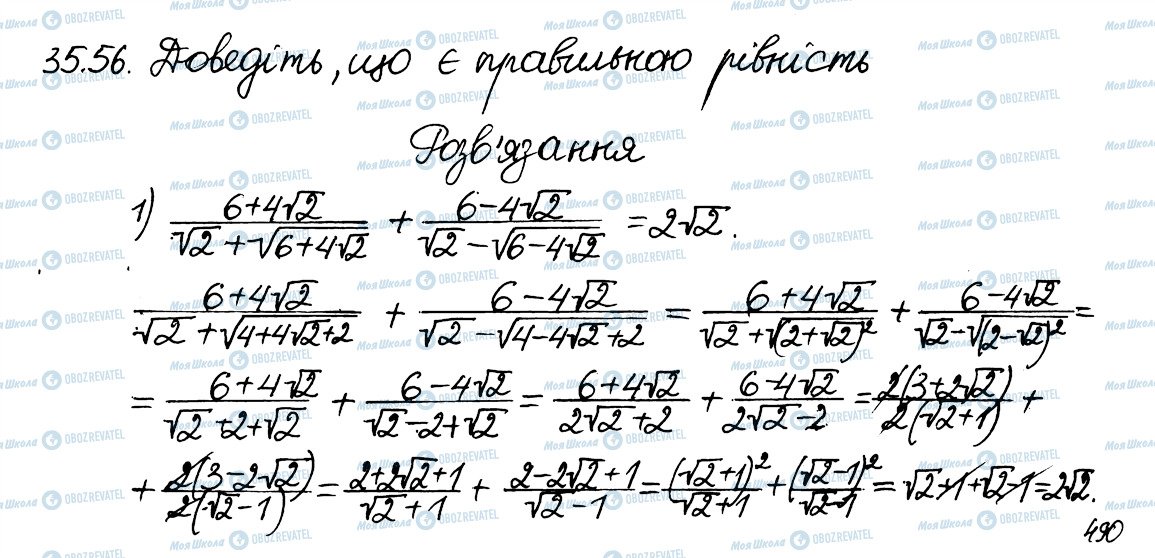 35.56. Доведіть, що є правильною рівність
Розв'язання
1) (6+4√2)/(√2+√(6+4√2)) + (6-4√2)/(√2-√(6-4√2)) = 2√2.
(6+4√2)/(√2+√(4+4√2+2)) + (6-4√2)/(√2-√(4-4√2+2)) = (6+4√2)/(√2+√((2+√2)²)) + (6-4√2)/(√2-√((2-√2)²)) =
= (6+4√2)/(√2+2+√2) + (6-4√2)/(√2-2+√2) = (6+4√2)/(2√2+2) + (6-4√2)/(2√2-2) = 2(3+2√2)/2(√2+1) +
+ 2(3-2√2)/2(√2-1) = (2+2√2+1)/(√2+1) + (2-2√2+1)/(√2-1) = (√2+1)²/(√2+1) + (√2-1)²/(√2-1) = √2+1+√2-1=2√2.
490
МояШкола OBOZREVATEL